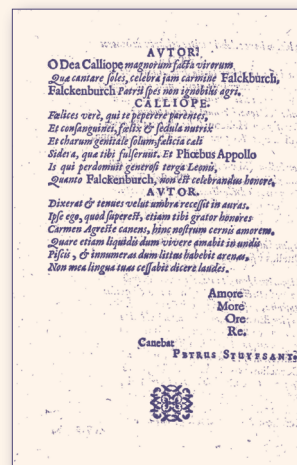 AVTOR.
O Dea Calliope magnorum facta virorum
Quæ cantare soles, celebra jam carmine Falckburch,
Falckenburch Patrii spes non ignobilis agri.
CALLIOPE.
Fœlices verè, qui te peperere parentes,
Et consanguinei, fœlix & sedula nutrix
Et charum genitale solum, fœlicia cœli
Sidera, quæ tibi fulserunt. Et Phœbus Appollo
Is qui perdomuit generosi terga Leonis,
Quanto Falckenburch, non est celebrandus honore,
AVTOR.
Dixerat & tenues velut umbra recessit in auras.
Ipse ego, quod superest, etiam tibi grator honores
Carmen Agreste canens, hinc nostrum cernis amorem.
Quare etiam liquidis dum vivere amabit in undis
Piscis, & innumeras dum littus habebit arenas,
Non mea lingua tuas cessabit dicere laudes.
Amore
More
Ore
Re.
Canebat
PETRUS STUYFSANT